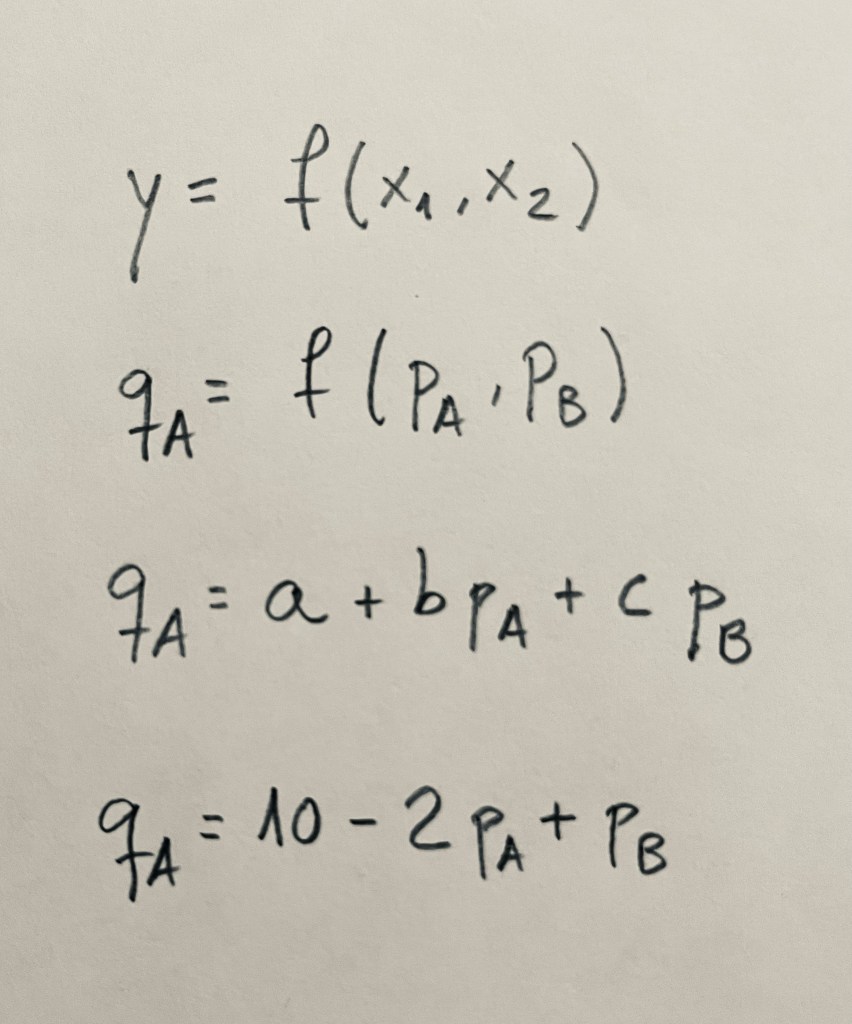 y = f(x₁, x₂)
q_A = f(p_A, p_B)
q_A = a + b p_A + c p_B
q_A = 10 - 2 p_A + p_B